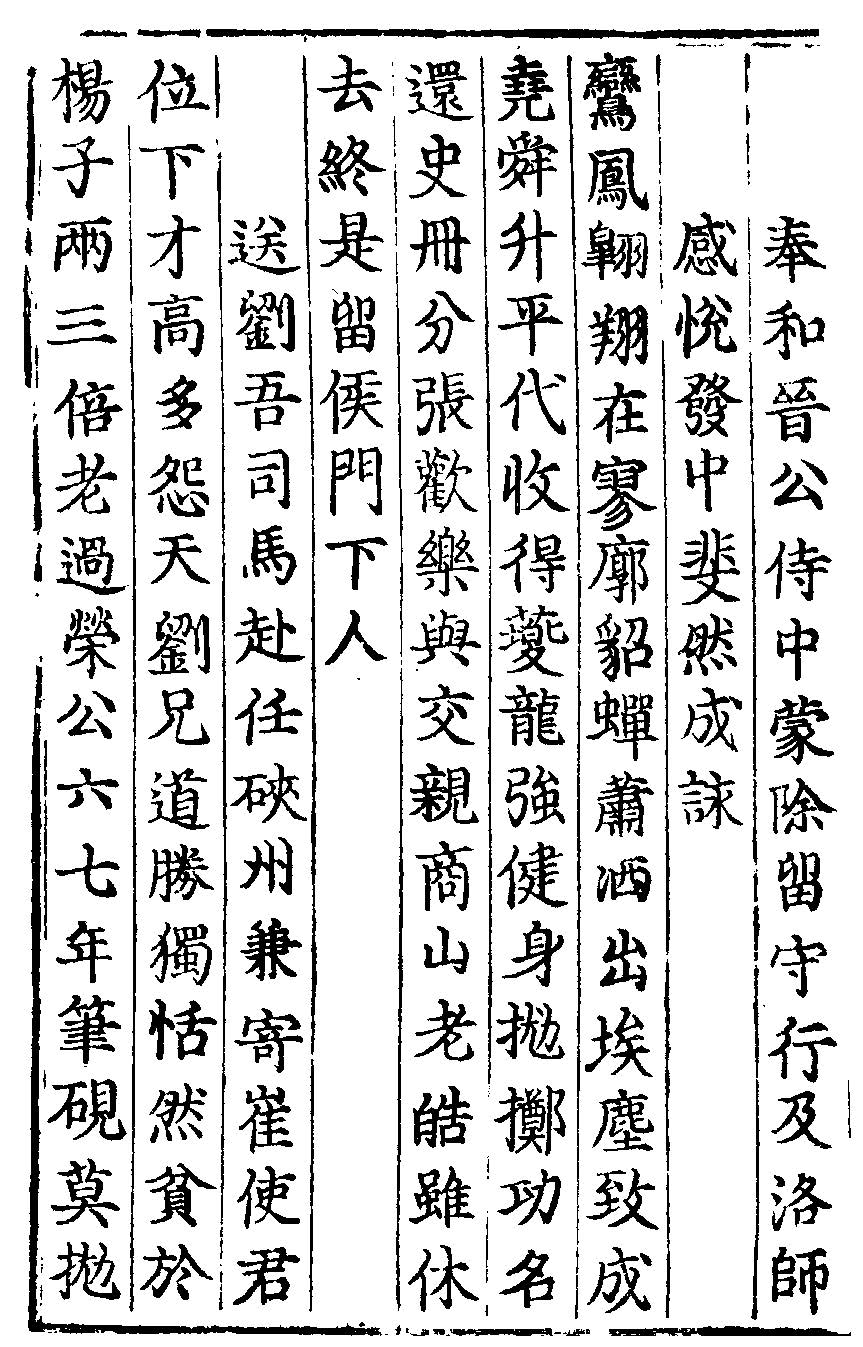 奉和晉公侍中蒙除留守行及洛師
感恱發中斐然成詠
鸞鳳翱翔在寥廓貂蟬蕭洒出埃塵致成
堯舜升平代收得夔龍強健身拋擲功名
還史冊分張歡樂與交親商山老皓雖休
去終是留侯門下人
送劉吾司馬赴任硤州兼寄崔使君
位下才高多怨天劉兄道勝獨恬然貧於
楊子兩三倍老過榮公六七年筆硯莫拋